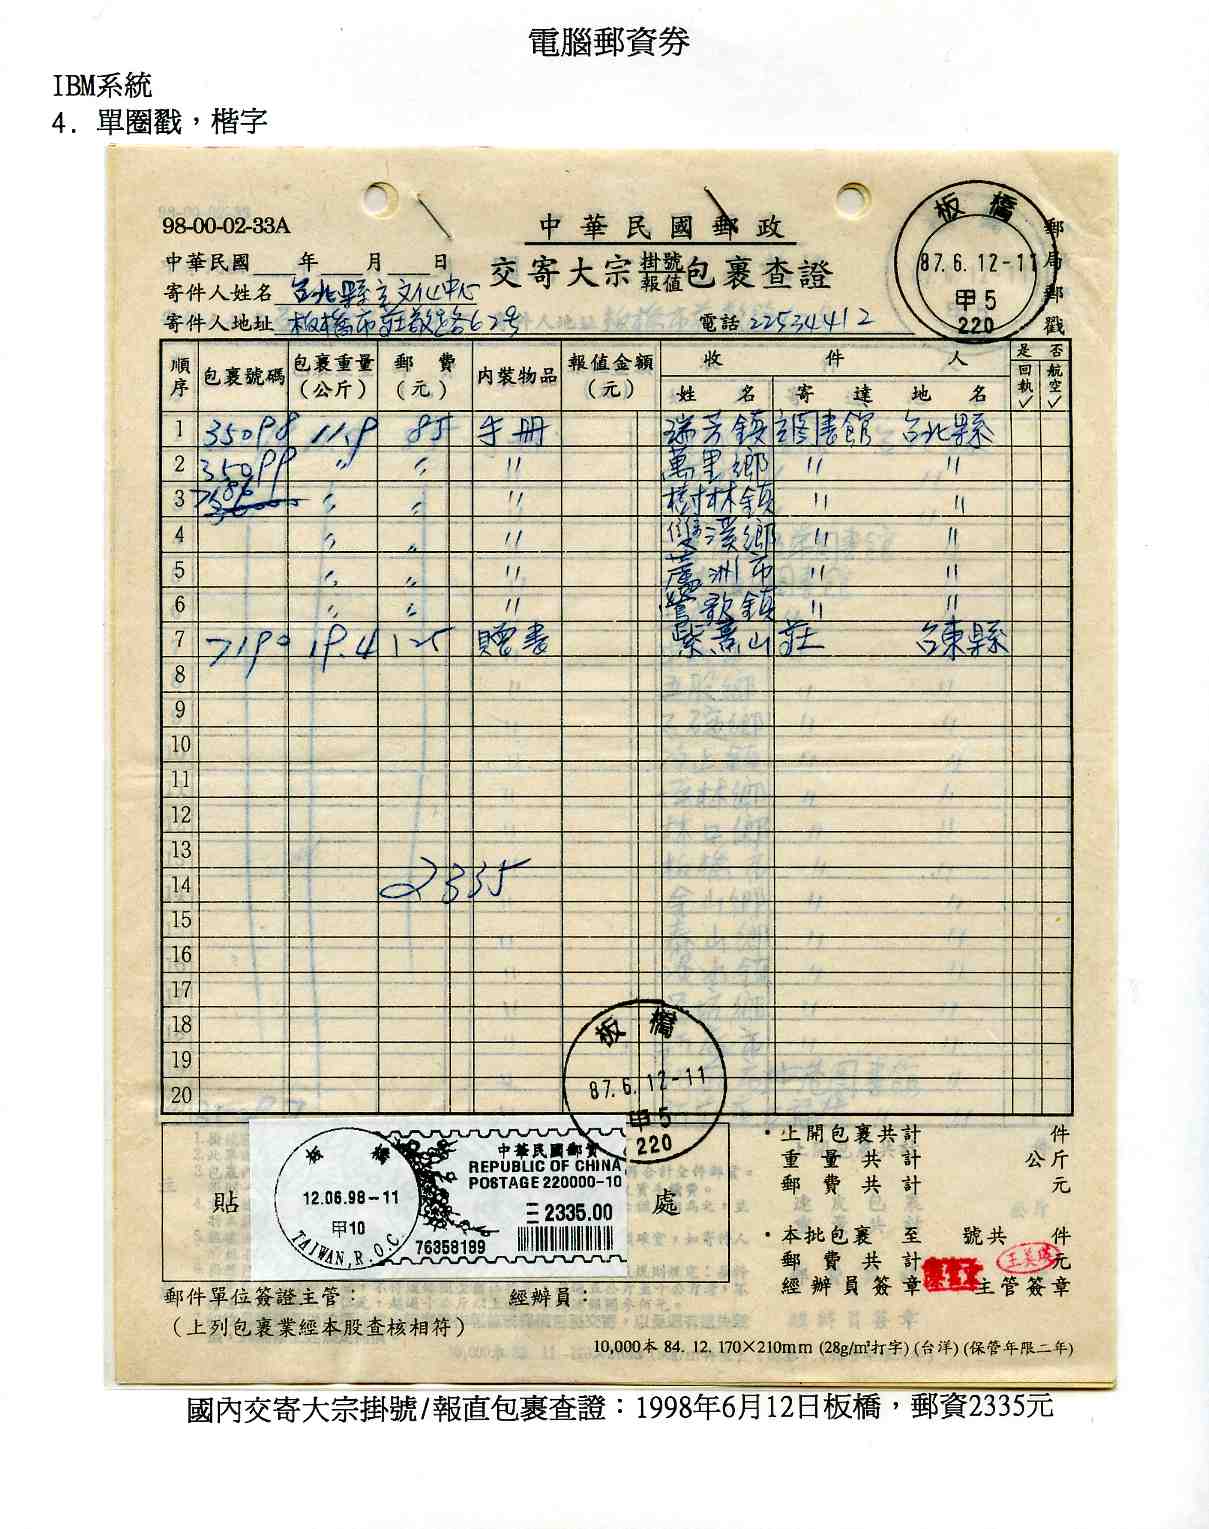 電腦郵資券
IBM系統
4. 單圈戳，楷字
98-00-02-33A
中華民國郵政
中華民國 年 月 日
交寄大宗掛號報值包裹查證
郵局郵戳
板橋
87.6.12-11
甲5
220
寄件人姓名 台北縣立文化中心
寄件人地址 板橋市莊敬路62號 電話 22534412
順序 包裹號碼 包裹重量(公斤) 郵費(元) 內裝物品 報值金額(元) 收件人 是否
姓名 寄達地名 回執✓ 航空✓
1 35098 11.9 85 手冊 瑞芳鎮立圖書館 台北縣
2 35099 〃 〃 〃 萬里鄉 〃 〃
3 〃 〃 〃 樹林鎮 〃 〃
4 〃 〃 〃 雙溪鄉 〃 〃
5 〃 〃 〃 蘆洲市 〃 〃
6 〃 〃 〃 鶯歌鎮 〃 〃
7 7190 19.4 125 贈書 山莊 台東縣
8
9
10
11
12
13
14 2335
15
16
17
18
19
20
板橋
87.6.12-11
甲5
220
貼
板橋
12.06.98-11
甲10
TAIWAN, R.O.C.
中華民國郵資
REPUBLIC OF CHINA
POSTAGE 220000-10
2335.00
76358189
處
上開包裹共計 件
重量共計 公斤
郵費共計 元
本批包裹 至 號共 件
郵費共計 元
經辦員簽章 主管簽章
郵件單位簽證主管： 經辦員：
（上列包裹業經本股查核相符）
10,000本 84. 12. 170×210mm (28g/m²打字) (台洋) (保管年限二年)
國內交寄大宗掛號/報直包裹查證：1998年6月12日板橋，郵資2335元